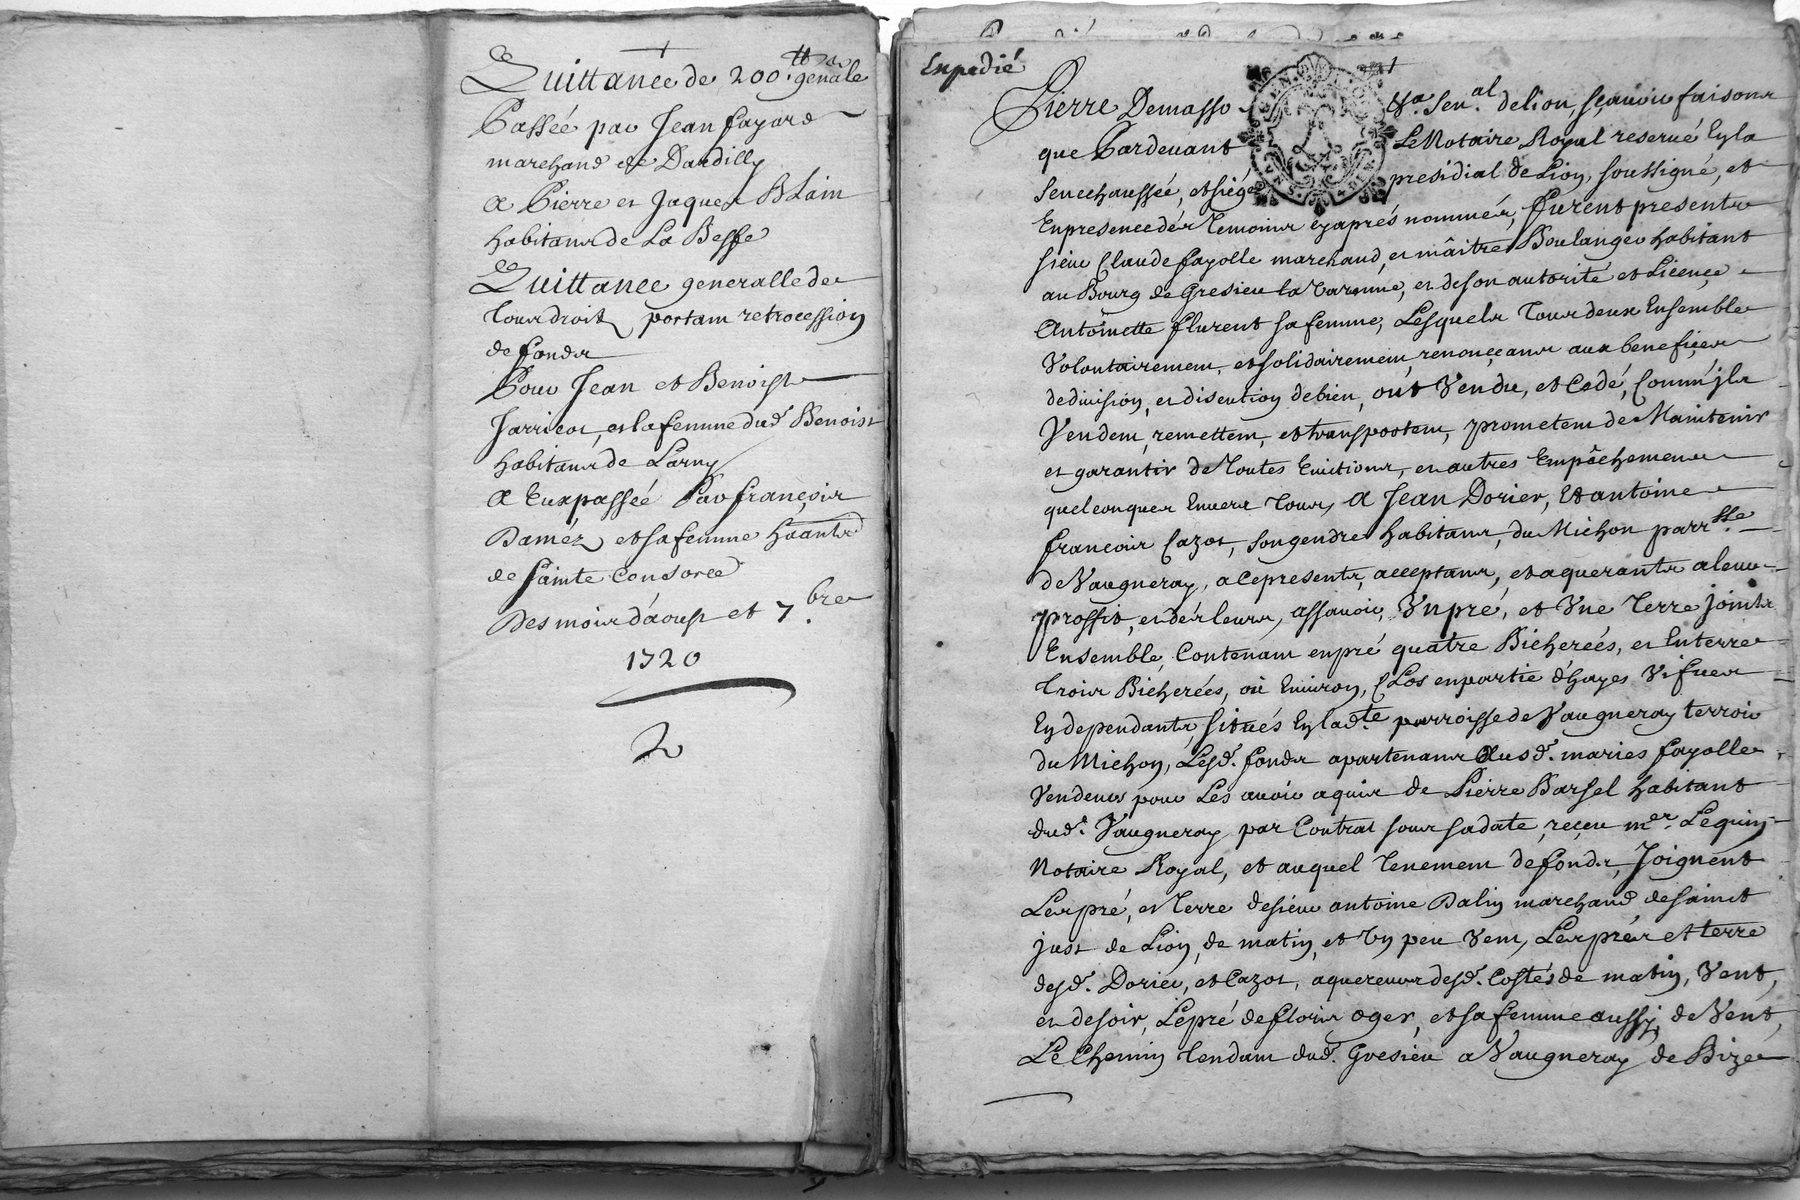 Quittance de 200 ₶ genâle
Passée par Jean fayard
marchand de Dardilly
A Pierre et Jaques Blain
habitans de La Besse
Quittance generalle de
Tous droits portant retrocession
de fonds
Pour Jean et Benoist
Jarricot, et la femme dud. Benoist
habitans de Larny
A Eux passée Par françois
Damez et sa femme
de Sainte Consorce
Des mois d'aoust et 7.bre
1720
2
Expedié
Pierre Demasso
Sen.al de lion, sçavoir faisons
que Pardevant Le Notaire Royal reservé En la
Senechaussée, et siège presidial de Lion, soussigné, et
En presence dés Temoins cy aprés nommés, furent presents
sieur Claude fayolle marchand, et maître Boulanger habitant
au Bourg de Gresieu la Varenne, et de son autorité et Licençe
Antoinette flurent sa femme, Lesquels Tous deux Ensemble
Volontairement, et solidairement, renonçeans aux benefiçes
de division, et discution de bien, ont Vendu, et Cedé, Comm' jls
Vendent, remettent, et transportent, prometent de Maintenir
et garantir de Toutes Evictions, et autres Empâchemens
quelconques Envers Tous, A Jean Dorier, Et antoine
françois Cazot, son gendre habitans, du Michon parr.sse
de Vaugneray, a ce presents, acceptans, et aquerants a leur
proffit, et dés leurs, assavoir, Un pré, et Une Terre joints
Ensemble, Contenant en pré quatre Bicherées, et En terre
Trois Bicherées, où Environ, Clos en partie d'hayes Vifues
En dependants, situés En lad.te parroisse de Vaugneray terroir
du Michon, Lesd. fonds apartenans Ausd. mariés fayolle
Vendeurs pour Les avoir aquis de Pierre Barsel habitant
dud. Vaugneray par Contrat sous sa date, reçeu m.er Lequin
Notaire Royal, et auquel Tenement de fonds, Joignent
Les pré, et Terre de sieur antoine Dalin marchand de Saint
just de Lion, de matin, et Un peu Vent, Les prés et terre
desd. Dorier, et Cazot, aquereurs desd. Costés de matin, Vent,
et de soir, Le pré de floris Oger, et sa femme aussy, de Vent,
Le Chemin Tendant dud. Gresieu a Vaugneray de Bize